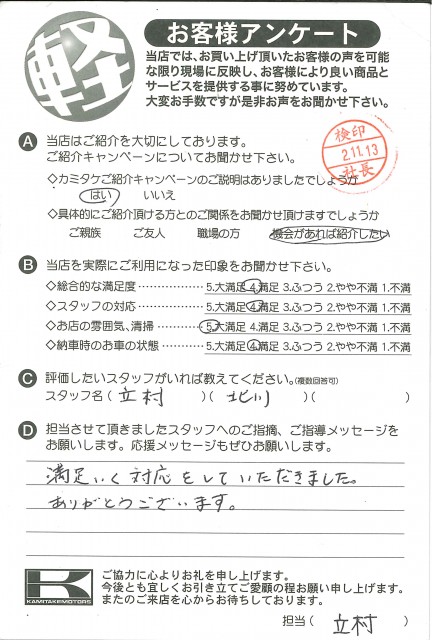 軽
お客様アンケート
当店では、お買い上げ頂いたお客様の声を可能
な限り現場に反映し、お客様により良い商品と
サービスを提供する事に努めています。
大変お手数ですが是非お声をお聞かせ下さい。
A 当店はご紹介を大切にしております。
ご紹介キャンペーンについてお聞かせ下さい。
検印
2.11.13
社長
◇カミタケご紹介キャンペーンのご説明はありましたでしょうか
はい いいえ
◇具体的にご紹介頂ける方とのご関係をお聞かせ頂けますでしょうか
ご親族 ご友人 職場の方 機会があれば紹介したい
B 当店を実際にご利用になった印象をお聞かせ下さい。
◇総合的な満足度………… 5.大満足 4.満足 3.ふつう 2.やや不満 1.不満
◇スタッフの対応………… 5.大満足 4.満足 3.ふつう 2.やや不満 1.不満
◇お店の雰囲気、清掃……… 5.大満足 4.満足 3.ふつう 2.やや不満 1.不満
◇納車時のお車の状態……… 5.大満足 4.満足 3.ふつう 2.やや不満 1.不満
C 評価したいスタッフがいれば教えてください。(複数回答可)
スタッフ名(立村)(北川)( )
D 担当させて頂きましたスタッフへのご指摘、ご指導メッセージを
お願いします。応援メッセージもぜひお願いします。
満足いく対応をしていただきました。
ありがとうございます。
K
KAMITAKEMOTORS
ご協力に心よりお礼を申し上げます。
今後とも宜しくお引き立てご愛顧の程お願い申し上げます。
またのご来店を心からお待ちしております。
担当(立村)